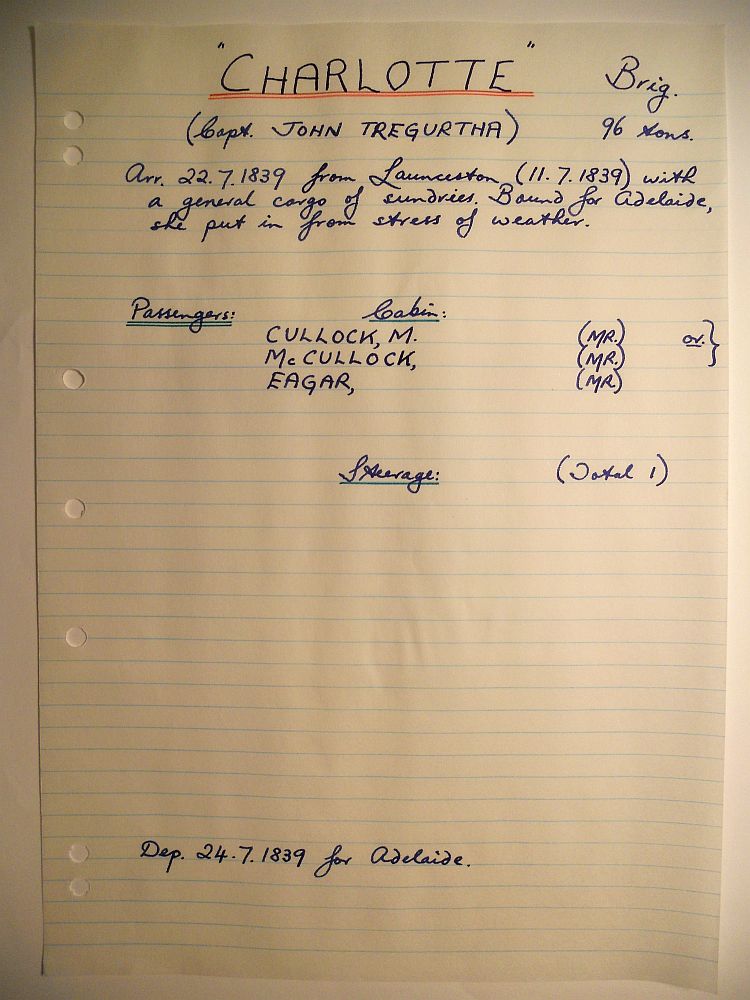 "CHARLOTTE" Brig.
(Capt. JOHN TREGURTHA) 96 tons.
Arr. 22.7.1839 from Launceston (11.7.1839) with
a general cargo of sundries. Bound for Adelaide,
she put in from stress of weather.
Passengers: Cabin:
CULLOCK, M. (MR.) or. }
McCULLOCK, (MR.)
EAGAR, (MR)
Steerage: (Total 1)
Dep. 24.7.1839 for Adelaide.